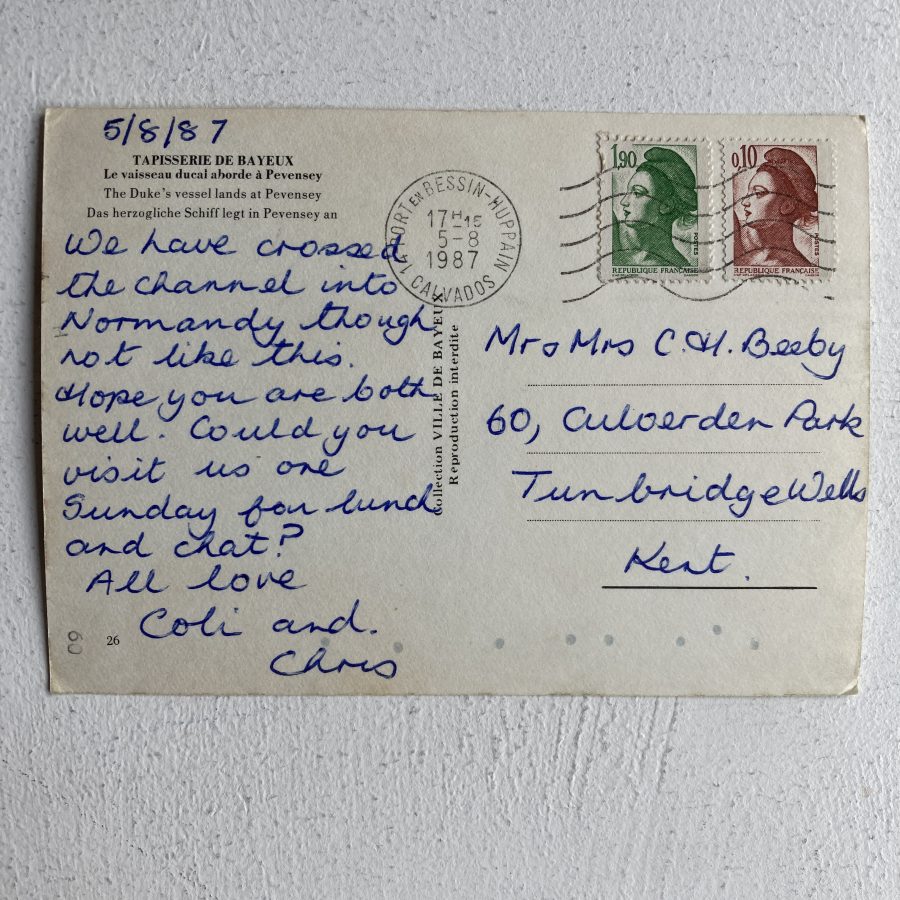 5/8/87
TAPISSERIE DE BAYEUX
Le vaisseau ducal aborde à Pevensey
The Duke's vessel lands at Pevensey
Das herzogliche Schiff legt in Pevensey an
We have crossed
the channel into
Normandy though
not like this.
Hope you are both
well. Could you
visit us one
Sunday for lunch
and chat?
All love
Coli and.
Chris
26
60
Collection VILLE DE BAYEUX
Reproduction interdite
14 PORT EN BESSIN-HUPPAIN
17H15
5-8
1987
CALVADOS
1,90
POSTES
REPUBLIQUE FRANCAISE
0,10
POSTES
REPUBLIQUE FRANCAISE
Mrs Mrs C.H. Beeby
60, Culverden Park
Tunbridge Wells
Kent.